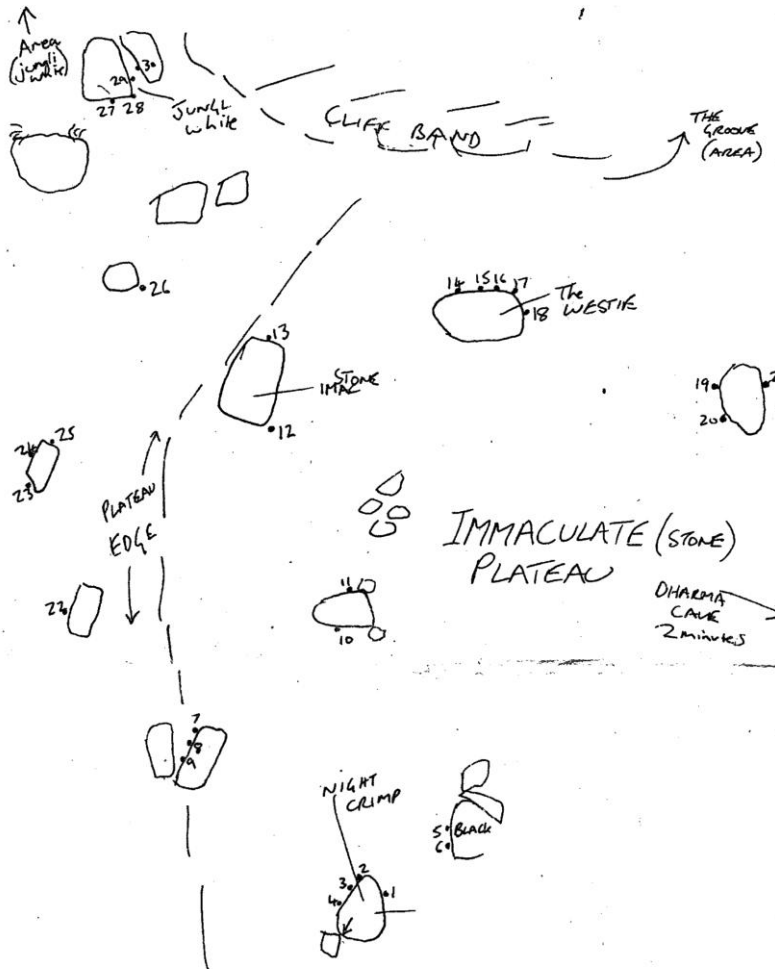 Area
(jungli
white)
3
29
27 28
JUNGL
white
CLIFF BAND
THE
GROOVE
(AREA)
26
14 15 16 17
18
The
WESTIE
13
STONE
IMAC
12
19
20
2
25
24
23
PLATEAU
EDGE
IMMACULATE (STONE)
PLATEAU
DHARMA
CAVE
2 minutes
22
11
10
7
8
9
NIGHT
CRIMP
5
6
BLACK
2
3
4
1